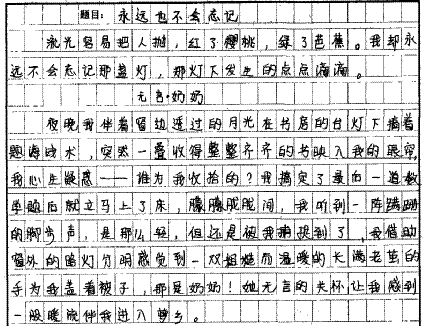 题目：永远也不会忘记
流光容易把人抛，红了樱桃，绿了芭蕉。我却永
远不会忘记那盏灯，那灯下发生的点点滴滴。
无言·奶奶
夜晚我伴着窗边透过的月光在书房的台灯下搞着
题海战术，突然一叠收得整整齐齐的书映入我的眼帘，
我心生疑惑——谁为我收拾的？我搞定了最后一道数
学题后就立马上了床，朦朦胧胧间，我听到一阵蹒跚
的脚步声，是那么轻，但还是被我捕捉到了，我借助
窗外的暗灯分明感觉到一双粗糙而温暖的长满老茧的
手为我盖着被子，那是奶奶！她无言的关怀让我感到
一股暖流伴我进入梦乡。